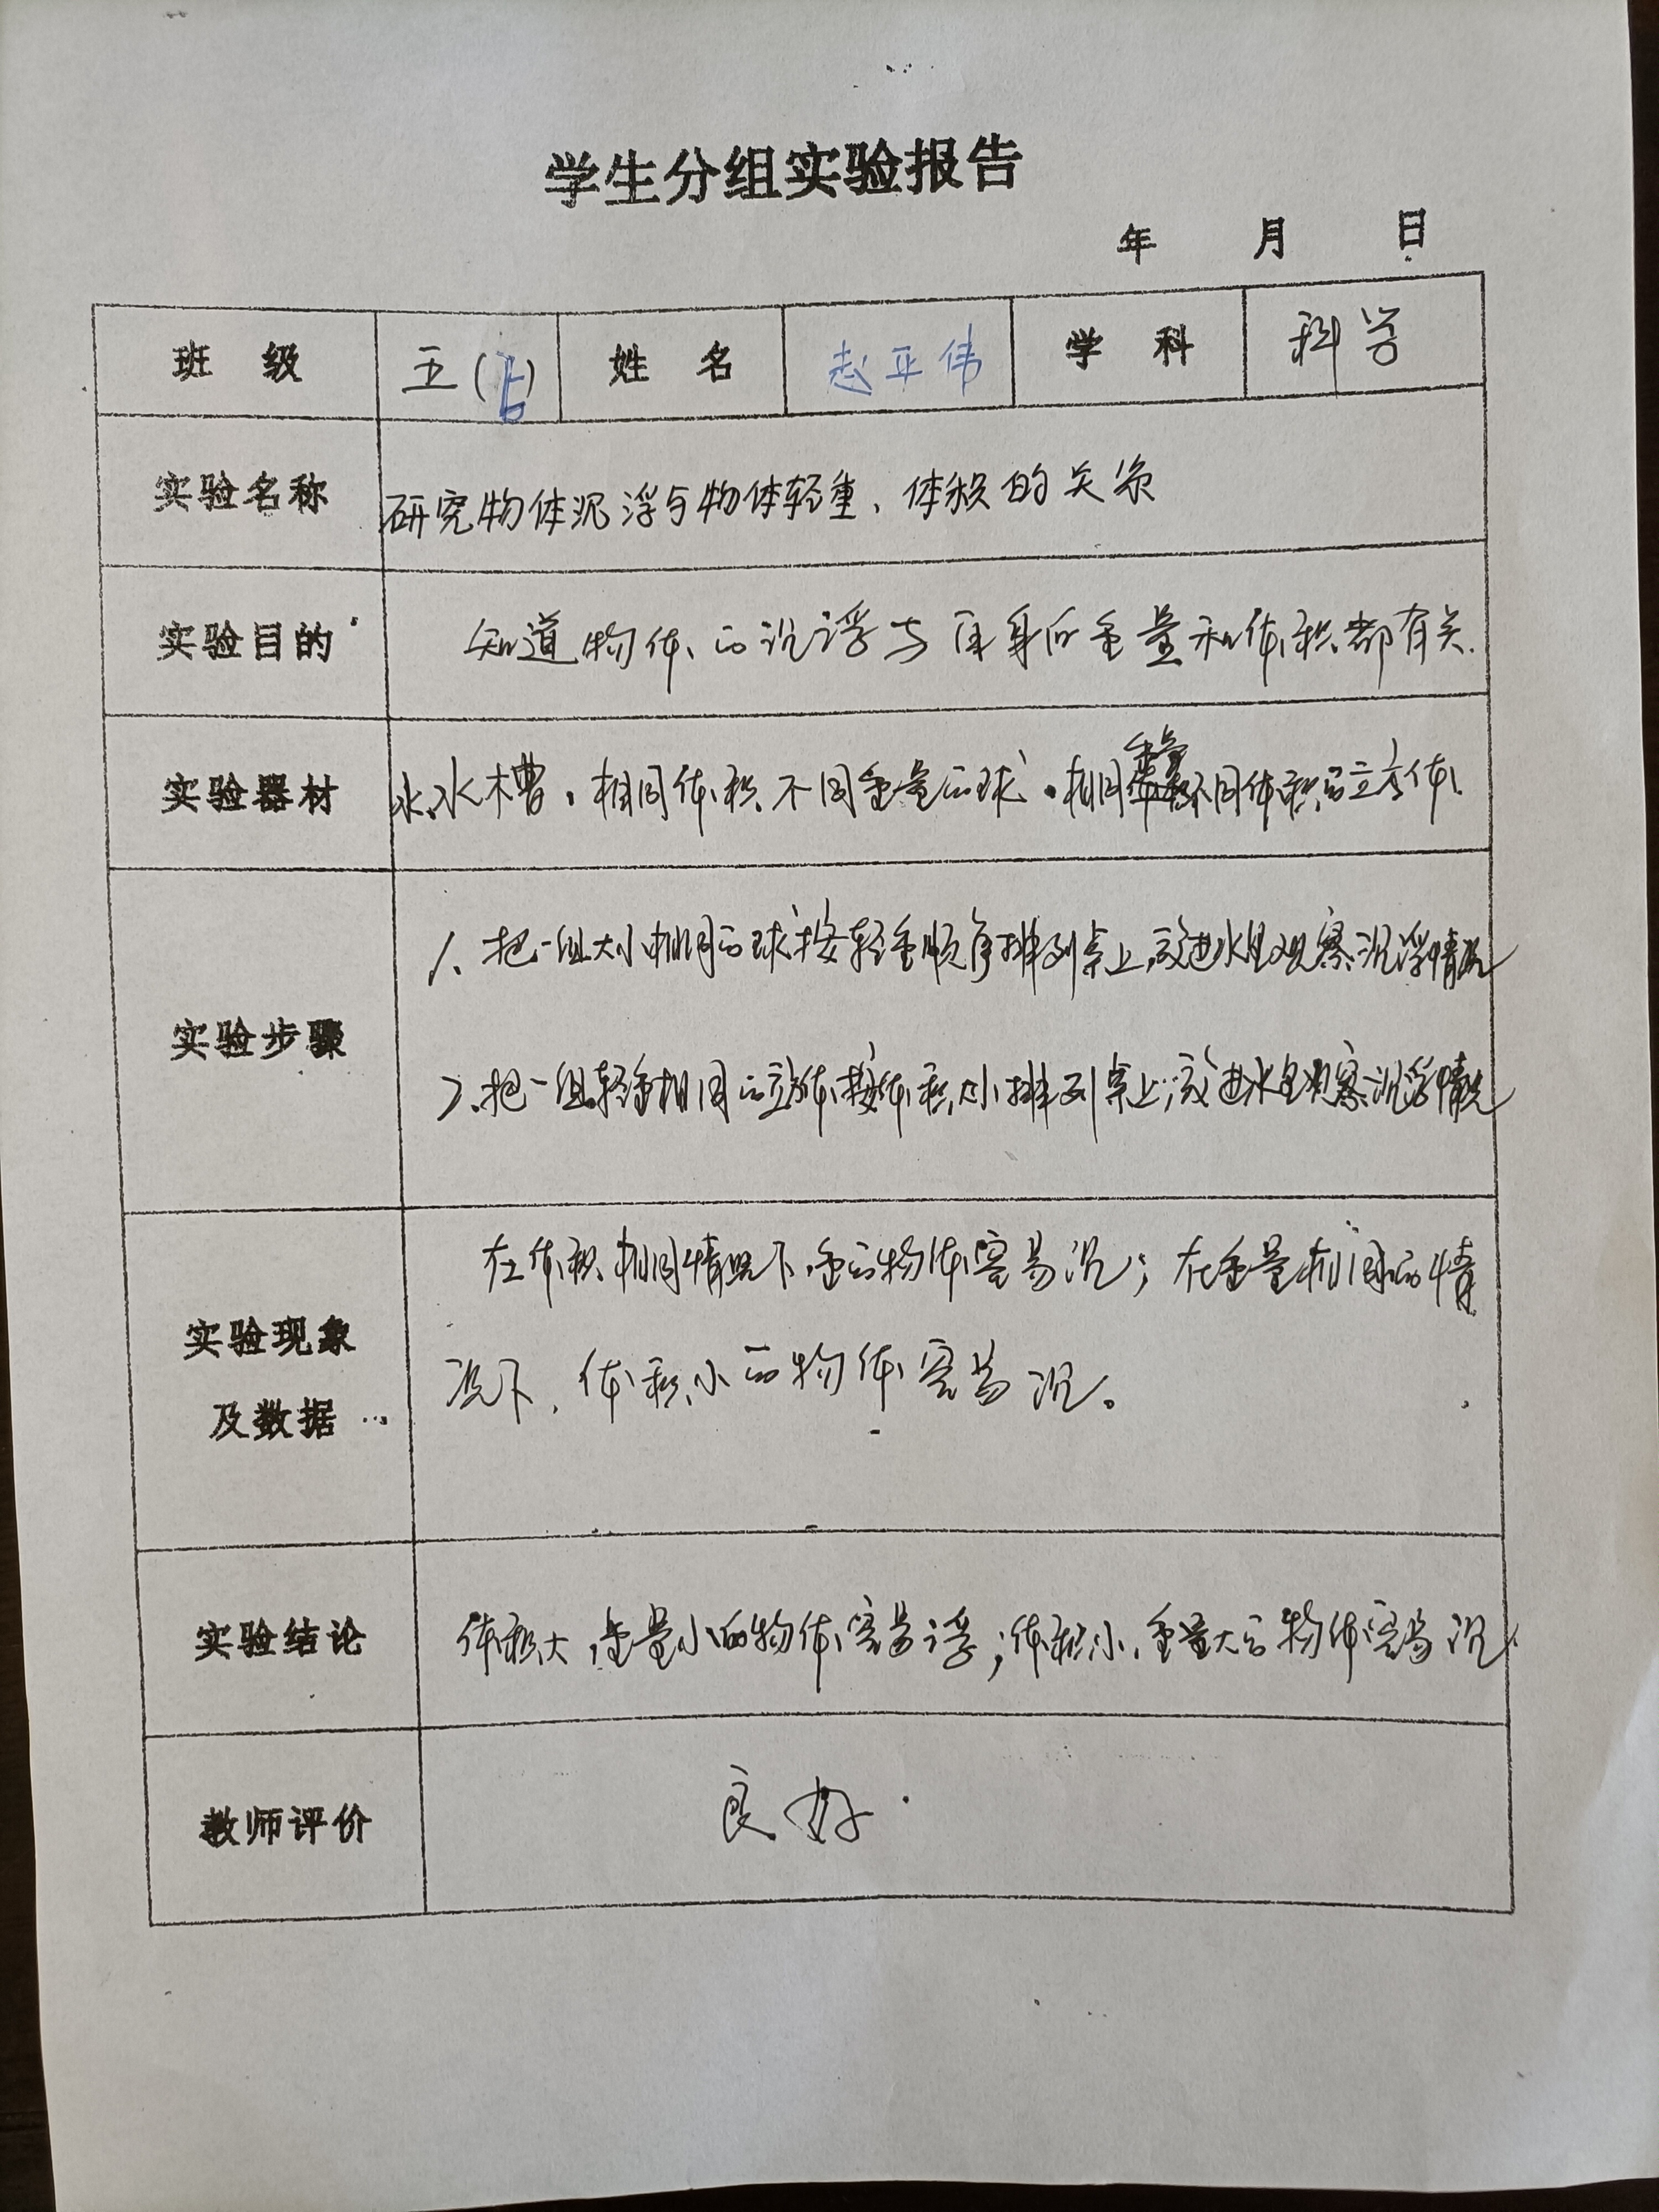 学生分组实验报告
年 月 日
班 级 五( ) 姓 名 赵平伟 学 科 科学
实验名称 研究物体沉浮与物体轻重、体积的关系
实验目的 知道物体的沉浮与自身的重量和体积都有关.
实验器材 水、水槽、相同体积不同重量的球、相同重量不同体积的立方体
实验步骤
1、把一组大小相同的球按轻重顺序排列桌上,放进水里观察沉浮情况
2、把一组轻重相同的立方体按体积大小排列桌上,放进水里观察沉浮情况
实验现象
及数据
在体积相同情况下,重的物体容易沉;在重量相同的情
况下,体积小的物体容易沉。
实验结论 体积大,重量小的物体容易浮;体积小,重量大的物体容易沉
教师评价 良好.